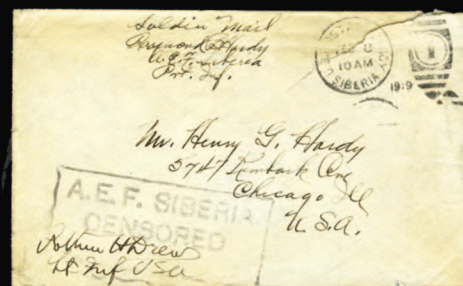 Soldier Mail
Raymond Hardy
A.E.F. Siberia
Inf.
10 AM
SIBERIA
1919
Mr. Henry G. Hardy
5747 Kimbark Ave
Chicago Ill
U.S.A.
A.E.F. SIBERIA
CENSORED
Lt Inf USA